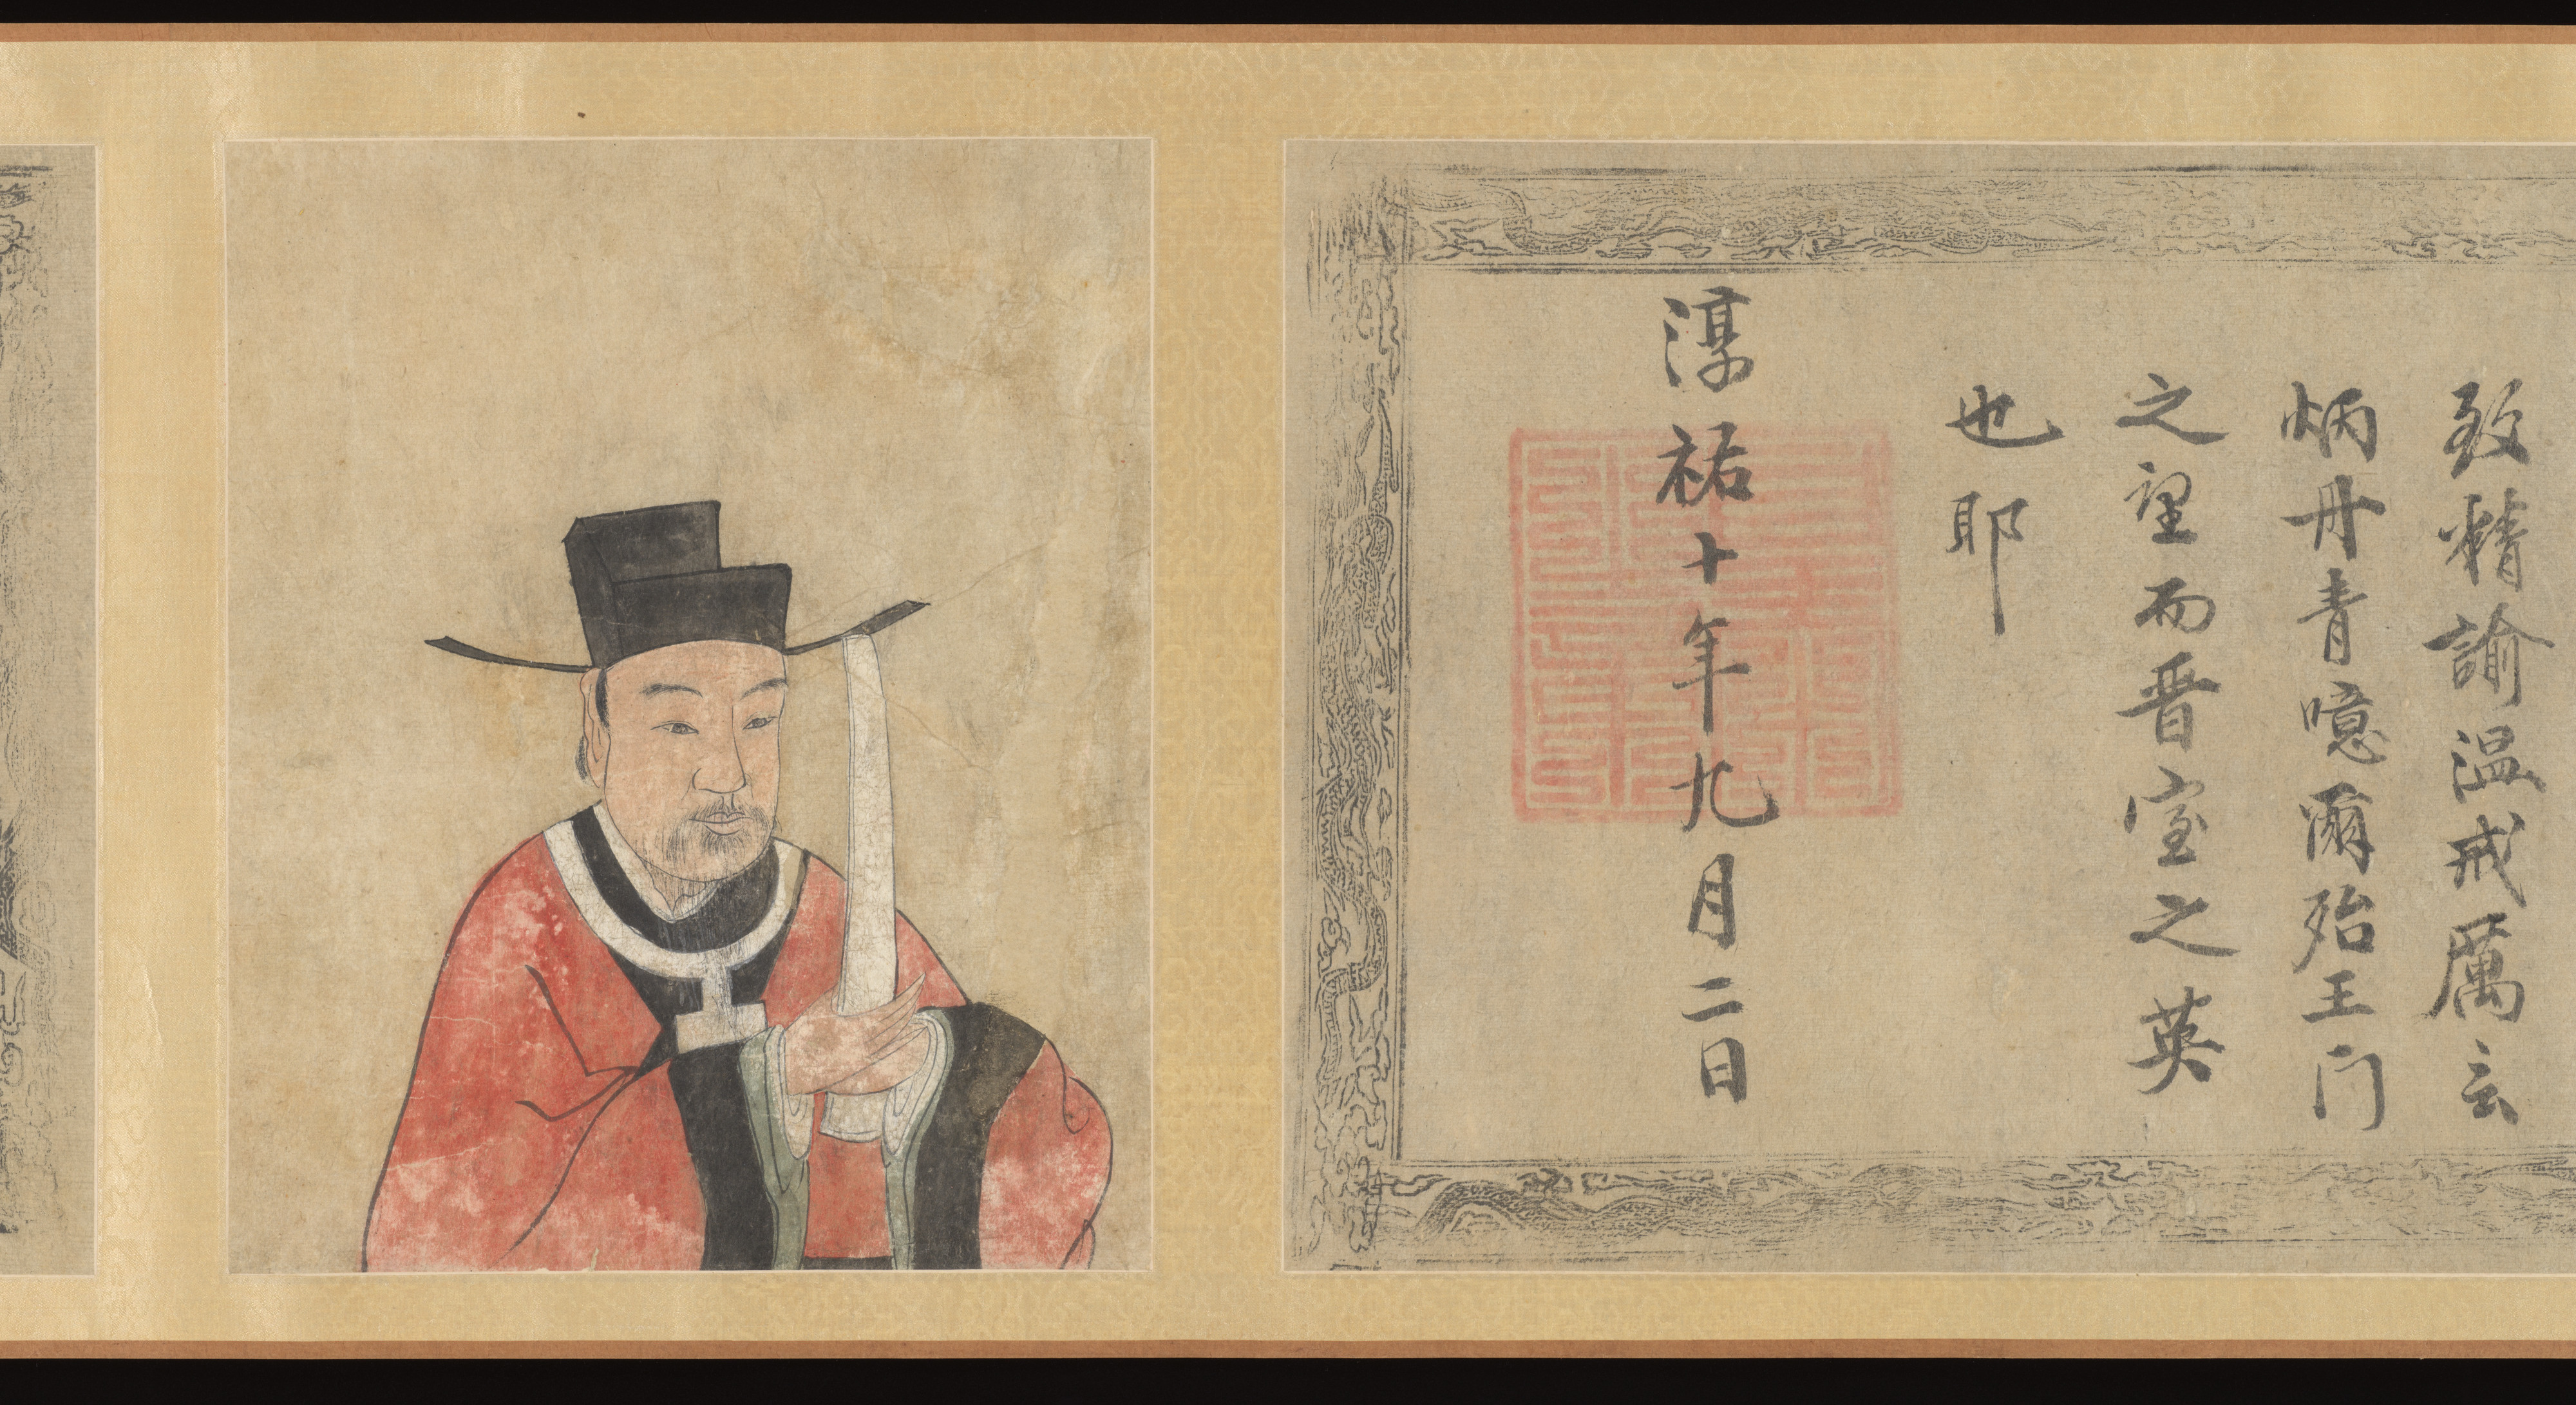 致精諭温戒厲云
炳丹青噫爾殆王门
之望而晋室之英
也耶
淳祐十年九月二日